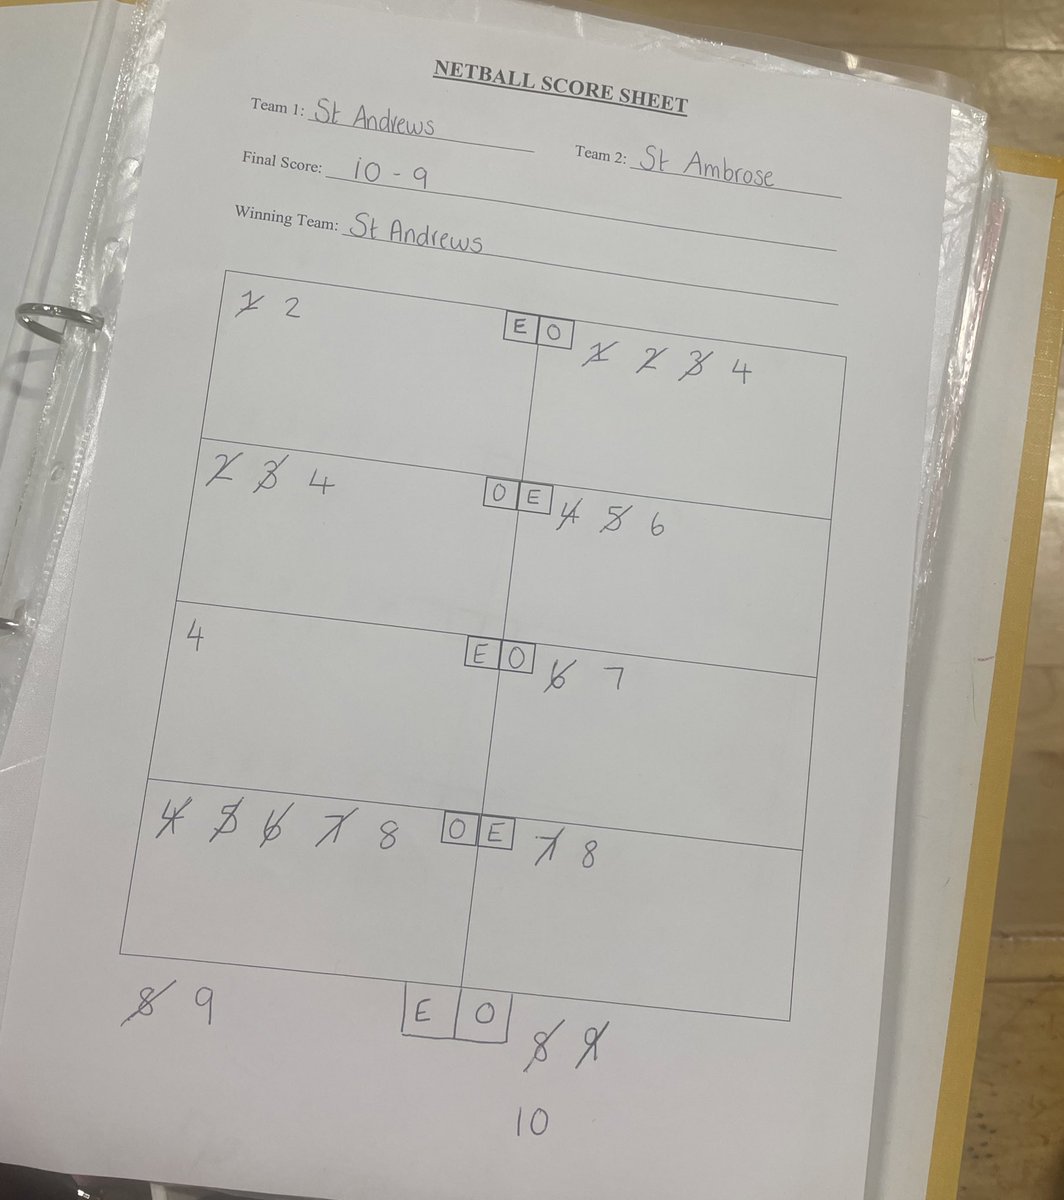 NETBALL SCORE SHEET
Team 1: St Andrews Team 2: St Ambrose
Final Score: 10 - 9
Winning Team: St Andrews
1 2 E O 1 2 3 4
2 3 4 O E 4 5 6
4 E O 6 7
4 5 6 7 8 O E 7 8
8 9 E O 8 9
10